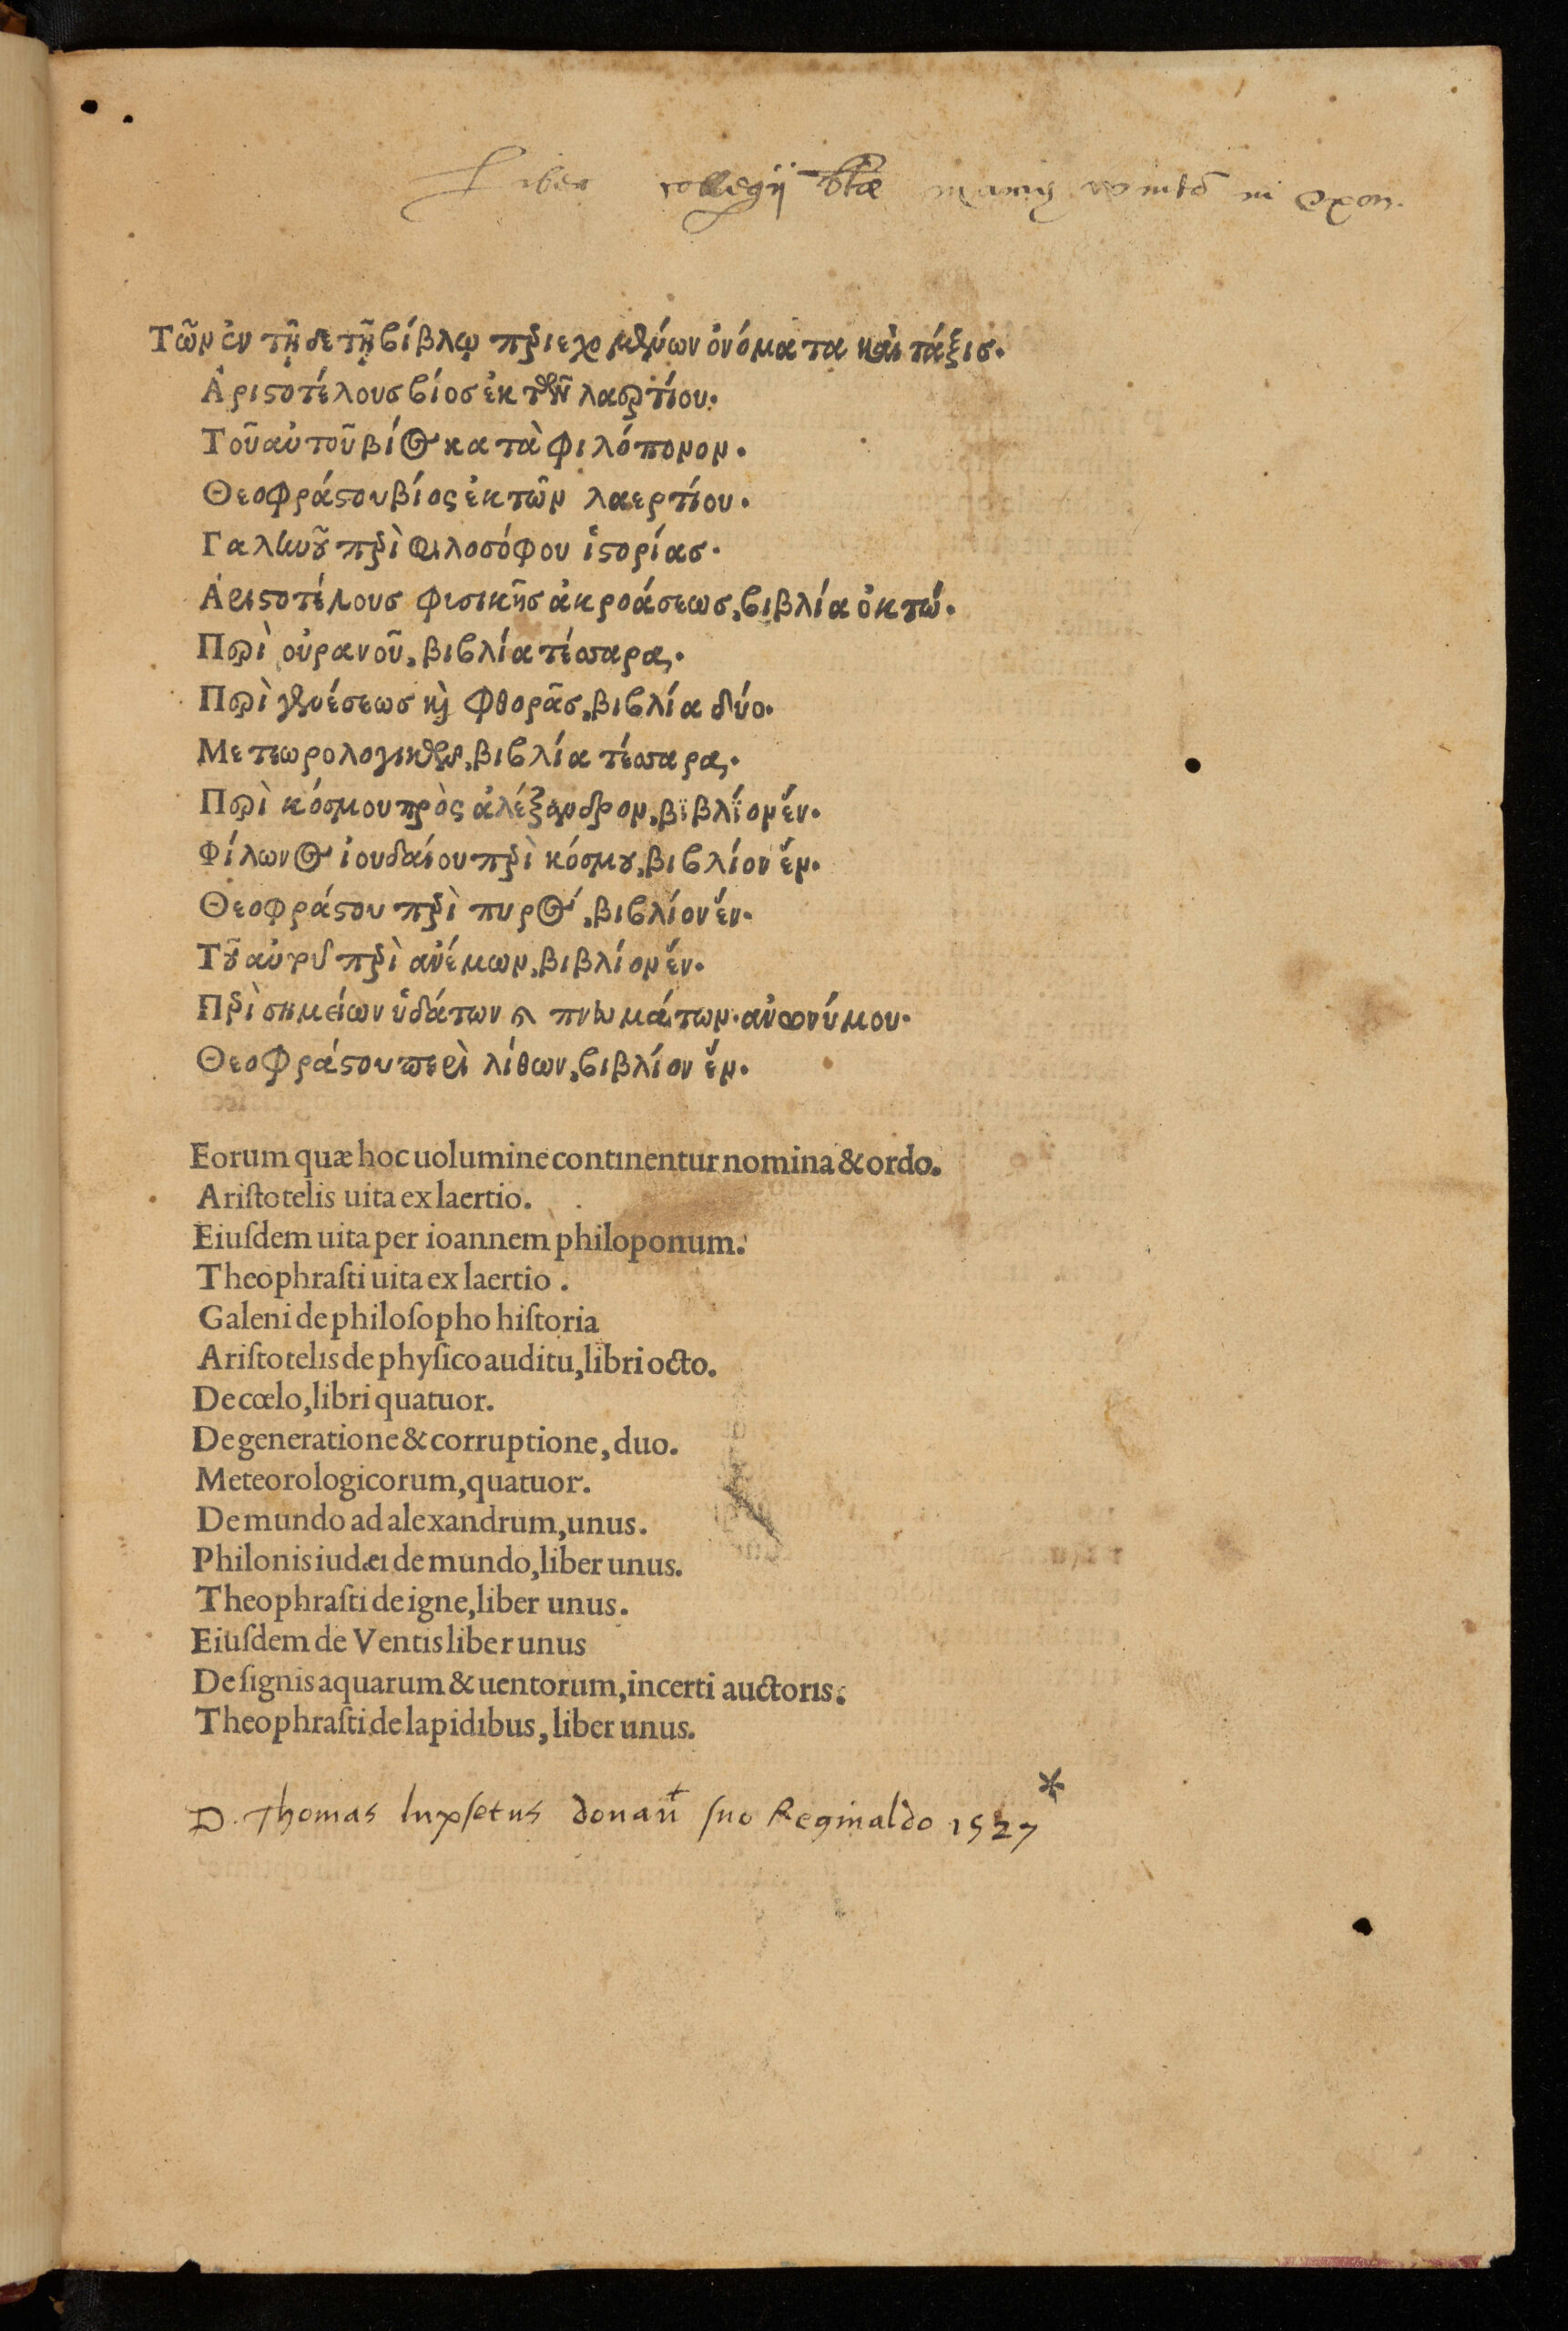 Liber collegij btæ mariæ wintõ in Oxon.
Τῶν ἐν τῇδε τῇ βίβλῳ περιεχομένων ὀνόματα καὶ τάξισ.
Ἀριστοτέλουσ βίοσ ἐκ τῶν λαερτίου.
Τοῦ αὐτοῦ βίος κατὰ φιλόπονον.
Θεοφράστου βίος ἐκ τῶν λαερτίου.
Γαληνοῦ περὶ φιλοσόφου ἱστορίασ.
Ἀριστοτέλουσ φισικῆσ ἀκροάσεωσ, βιβλία ὀκτώ.
Περὶ οὐρανοῦ, βιβλία τέσσαρα.
Περὶ γενέσεωσ καὶ φθορᾶσ, βιβλία δύο.
Μετεωρολογικῶν, βιβλία τέσσαρα.
Περὶ κόσμου πρὸς ἀλέξανδρον, βϊβλΐον ἕν.
Φίλωνος ἰουδαίου περὶ κόσμου, βιβλίον ἕν.
Θεοφράστου περὶ πυρός, βιβλίον ἕν.
Τοῦ αὐτοῦ περὶ ἀνέμων, βιβλίον ἕν.
Περὶ σημείων ὑδάτων καὶ πνευμάτων. ἀνωνύμου.
Θεοφράστου περὶ λίθων, βιβλίον ἕν.
Eorum quæ hoc uolumine continentur nomina & ordo.
Ariſtotelis uita ex laertio.
Eiuſdem uita per ioannem philoponum.
Theophraſti uita ex laertio.
Galeni de philoſopho hiſtoria
Ariſtotelis de phyſico auditu, libri octo.
De cœlo, libri quatuor.
De generatione & corruptione, duo.
Meteorologicorum, quatuor.
De mundo ad alexandrum, unus.
Philonis iudæi de mundo, liber unus.
Theophraſti de igne, liber unus.
Eiuſdem de Ventis liber unus
De ſignis aquarum & uentorum, incerti auctoris.
Theophraſti de lapidibus, liber unus.
D. Thomas lupſetus donauit ſuo Reginaldo 1527 *